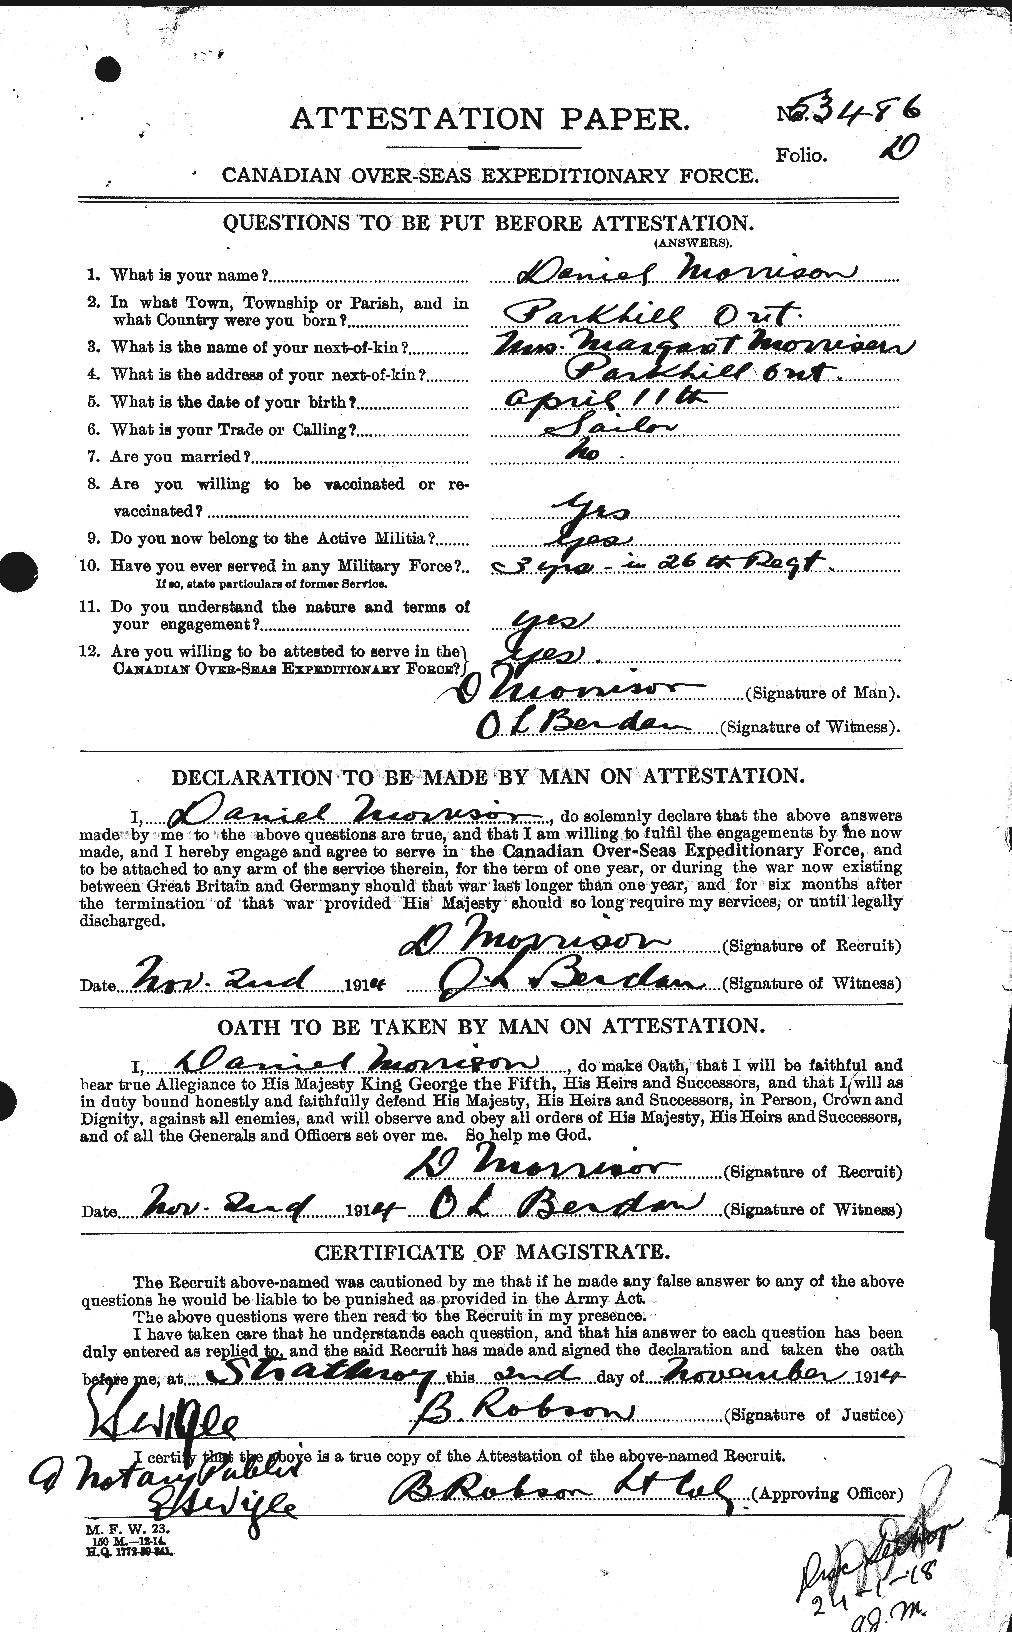 ATTESTATION PAPER.
No. 53486
Folio. D
CANADIAN OVER-SEAS EXPEDITIONARY FORCE.
QUESTIONS TO BE PUT BEFORE ATTESTATION.
(ANSWERS).
1. What is your name? Daniel Morrison
2. In what Town, Township or Parish, and in
what Country were you born? Parkhill Ont.
3. What is the name of your next-of-kin? Mrs. Margaret Morrison
4. What is the address of your next-of-kin? Parkhill Ont.
5. What is the date of your birth? April 11th
6. What is your Trade or Calling? Sailor
7. Are you married? No.
8. Are you willing to be vaccinated or re-
vaccinated? Yes
9. Do you now belong to the Active Militia? Yes
10. Have you ever served in any Military Force? 3 yrs - in 26th Regt.
If so, state particulars of former Service.
11. Do you understand the nature and terms of
your engagement? Yes
12. Are you willing to be attested to serve in the
CANADIAN OVER-SEAS EXPEDITIONARY FORCE? Yes.
D Morrison (Signature of Man).
O L Berdan (Signature of Witness).
DECLARATION TO BE MADE BY MAN ON ATTESTATION.
I, Daniel Morrison, do solemnly declare that the above answers
made by me to the above questions are true, and that I am willing to fulfil the engagements by me now
made, and I hereby engage and agree to serve in the Canadian Over-Seas Expeditionary Force, and
to be attached to any arm of the service therein, for the term of one year, or during the war now existing
between Great Britain and Germany should that war last longer than one year, and for six months after
the termination of that war provided His Majesty should so long require my services, or until legally
discharged.
D Morrison (Signature of Recruit)
Date Nov. 2nd 1914 O L Berdan (Signature of Witness)
OATH TO BE TAKEN BY MAN ON ATTESTATION.
I, Daniel Morrison, do make Oath, that I will be faithful and
bear true Allegiance to His Majesty King George the Fifth, His Heirs and Successors, and that I will as
in duty bound honestly and faithfully defend His Majesty, His Heirs and Successors, in Person, Crown and
Dignity, against all enemies, and will observe and obey all orders of His Majesty, His Heirs and Successors,
and of all the Generals and Officers set over me. So help me God.
D Morrison (Signature of Recruit)
Date Nov. 2nd 1914 O L Berdan (Signature of Witness)
CERTIFICATE OF MAGISTRATE.
The Recruit above-named was cautioned by me that if he made any false answer to any of the above
questions he would be liable to be punished as provided in the Army Act.
The above questions were then read to the Recruit in my presence.
I have taken care that he understands each question, and that his answer to each question has been
duly entered as replied to, and the said Recruit has made and signed the declaration and taken the oath
before me, at Strathroy this 2nd day of November 1914
B. Robson (Signature of Justice)
I certify that the above is a true copy of the Attestation of the above-named Recruit.
A Notary Public
B Robson Lt Col. (Approving Officer)
M. F. W. 23.
150 M.—12-14.
H.Q. 1772-39-841.
24-1-18